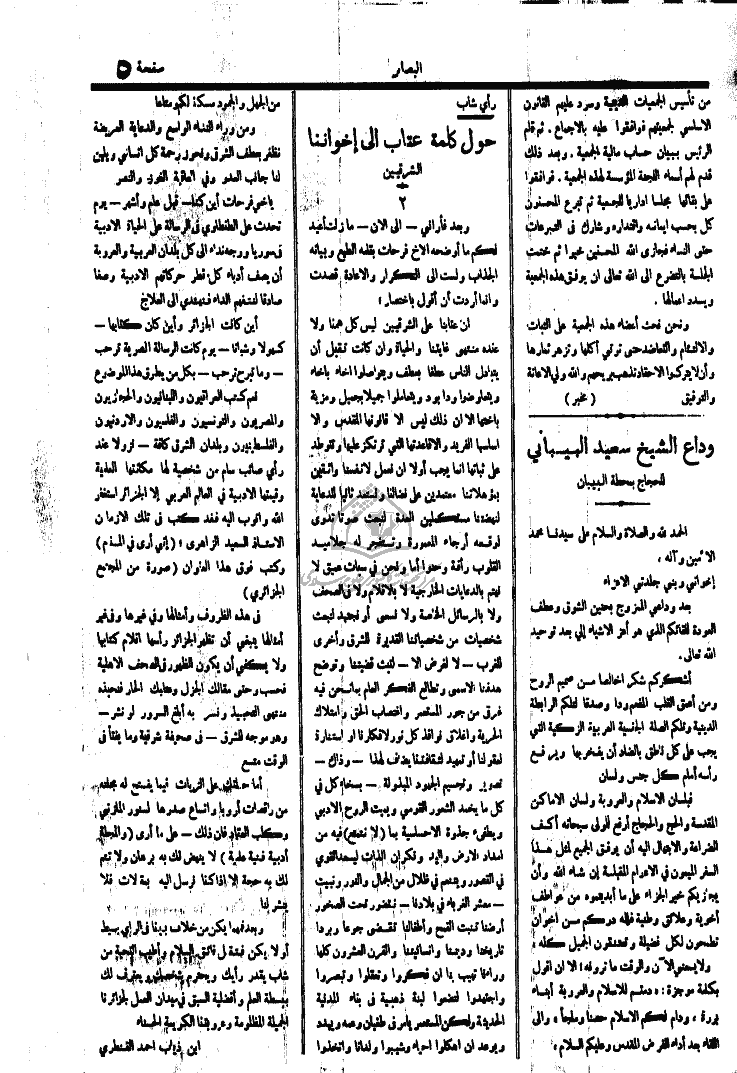 البصائر
صفحة ٥
من تأسيس الجمعيات الخيرية وسرد عليهم القانون
الاساسي لجمعيتهم فوافقوا عليه بالاجماع . ثم قام
الرئيس ببيان حساب مالية الجمعية . وبعد ذلك
قدم لهم أسماء اللجنة المؤسسة لهذه الجمعية . فوافقوا
على بقائها مجلسا اداريا للجمعية ثم تبرع المحسنون
كل بحسب ايمانه واقتداره وشارك في التبرعات
حتى النساء فجازى الله المحسنين خيرا ثم ختمت
الجلسة بالتضرع الى الله تعالى ان يوفق هذه الجمعية
ويسدد اعمالها .
ونحن نحث أعضاء هذه الجمعية على الثبات
والالتئام والتعاضد حتى تؤتي أكلها وتزهر ثمارها
وأن لا يتركوا الاحقاد تذهب بريحهم والله ولي الاعانة
والتوفيق ( مخبر )
وداع الشيخ سعيد البيباني
للحجاج بمحطة البيبان
الحمد لله والصلاة والسلام على سيدنا محمد
الأمين وآله ،
إخواني وبني جلدتي الاعزاء
بعد وداعي الممزوج بحنين الشوق وعطف
العودة للقائكم الذي هو أعز الاشياء إلي بعد توحيد
الله تعالى.
أشكركم شكر اخالصا من صميم الروح
ومن أعمق القلب المغمور وصدقا لتلكم الرابطة
الدينية وتلكم الصلة الجنسية العربية الزكية التي
يجب على كل ناطق بالضاد أن يفخر بها ويرفع
رأسه أمام كل جنس ولسان
فبلسان الاسلام والعروبة ولسان الاماكن
المقدسة والحج والحجاج أرفع للولى سبحانه أكف
الضراعة والابتهال اليه أن يوفق الجميع لمثل هذا
السفر الميمون في الاعوام المقبلة إن شاء الله وأن
يجازيكم خير الجزاء على ما أبديتموه من عواطف
أخوية وعلائق وطنية فلله دركم من اخوان
تطمحون لكل فضيلة وتعتنقون الجميل كله ،
ولا يسعني الآن والوقت ما ترونه الا ان اقول
بكلمة موجزة : دمتم للاسلام والعروبة أبناء
بررة ، ودام لكم الاسلام حصنا وملجأ ، والى
اللقاء بعد أداء الفرض المقدس وعليكم السلام ،
رأي شاب
حول كلمة عتاب الى إخواننا
الشرقيين
٢
وبعد فأراني — الى الان — ما زلت أعيد
لكم ما أوضحه الاخ فرحات بقلمه الطيع وبيانه
الجذاب ولست الى التكرار والاعادة قصدت
وانما أردت أن أقول باختصار :
ان عتابنا على الشرقيين ليس كل همنا ولا
عنده منتهى غايتنا والحياة وان كانت تتقبل أن
يتبادل الناس عطفا بعطف ويتواصلوا اخاء باخاء
ويتعارضوا ودا بود ويتعاملوا جميلا بجميل ومزية
باختها الا ان ذلك ليس الا قانونها المقدس ولا
اساسها الفريد والاقاعدتها التي ترتكز عليها وتتوطد
على ثباتها انما يجب أولا ان نعمل لانفسنا واثقين
بمؤهلاتنا معتمدين على فضائلنا ونستعد ثانيا للدعاية
لنهضتنا مستكملين العدة لنبعث صوتا تدوى
لوقعه أرجاء المعمورة وتنفجر له جلاميد
القلوب رأفة وحنوا أما ونحن في سبات عميق لا
نهتم بالدعايات الخارجية لا بالاقلام ولا في الصحف
ولا بالرسائل الخاصة ولا نسمى أو نجتهد لنبعث
شخصيات من شخصياتنا القديرة للشرق وأخرى
للغرب — لا لغرض الا — لتبث قضيتنا وتوضح
هدفنا الاسمى وتطالع الفكر العام بما نحن فيه
غرق من جور المستعمر واغتصاب الحق وامتلاك
الحرية واغلاق نوافذ كل نور لافكارنا او استنارة
لعقولنا أو تمهيد لثقافتنا لهذا — وذاك —
تصوير وتجسيم الجهود المبذولة — بسخاء كل في
كل ما يخمد الشعور القومي ويميت الروح الادبي
ويطفىء جذوة الاحساسية بما (لا نتمتع) فيه من
امداد الارض واليد ونكران الذات ليسعد القوي
في القصور وينعم في ظلال من الجمال والنور ونبيت
— معشر الغرباء في بلادنا — تحت الصخور
أرضنا تنبت القمح وأطفالنا تقضى جوعا وبردا
تاريخنا وديننا وانسانيتنا والقرن العشرون كلها
وراءنا تهيب بنا ان تفكروا وتعقلوا وتبصروا
واجتهدوا لتضعوا لبنة ذهبية في بناء المدنية
الحديثة ولكن المستعمر يأمر في طغيان وعمه ويهدد
ويوعد ان اهلكوا احياء وشيبوا ولدانا واتخذوا
من الجهل والجمود مسكنا لكم وملجأ
ومن وراء النداء الواسع والدعاية العريضة
نظفر بعطف الشرق ونحوز رحمة كل انساني ويلين
لنا جانب العدو وفي العاقبة الفوز والنصر
ياخي فرحات أين كنا — قبل عام وأشهر — يوم
تحدث على الطنطاوي في الرسالة على الحياة الادبية
في سوريا ووجه نداءه الى كل بلدان العربية والعروبة
أن يصف أدباء كل قطر حركاتهم الادبية وصفا
صادقا لنتفهم الداء فنهتدي الى العلاج
أين كانت الجزائر وأين كان كتابها —
كهولا وشبانا — يوم كانت الرسالة المصرية ترحب
— وما تبرح ترحب — بكل من يطرق هذا الموضوع
لقد كتب العراقيون واللبنانيون والحجازيون
والمصريون والتونسيون والفلسيون والاردنيون
والفلسطينيون وبلدان الشرق كافة — نزولا عند
رأي صائب سام من شخصية لها مكانتها العلمية
وقيمتها الادبية في العالم العربي إلا الجزائر استغفر
الله واتوب اليه فقد كتب في تلك الازمان
الاستاذ السعيد الزاهري : (إني أرى في المنام)
وكتب فوق هذا العنوان (صورة من المجتمع
الجزائري)
في هذه الظروف وأمثالها وفي غيرها وفي غير
أمثالها ينبغي أن تظهر الجزائر رأسها اقلام كتابها
ولا يكفي أن يكون الظهور في الصحف الاهلية
فحسب وحتى مقالك الجزل وعتابك الحار فنحبذه
منتهى التحبيذ ونسر به أبلغ السرور لو نشر —
وهو موجه للشرق — في صحيفة شرقية وما يفتأ في
الوقت متسع
أما حملتك على الزيات فيما يفسح له مجلته
من راقصات أروبا واتساع صدرها لسفور المازني
وكلب العقاد فان ذلك — على ما أرى (والمجلة
أدبية فنية علمية) لا ينهض لك به برهان ولا تتم
لك به حجة إلا إذا كنا نرسل اليه بمقالات فلا
ينشر لنا
وبعد فهما يكن من خلاف بيننا في الرأي بسيط
أو لا يكن فبتة لي فائق السلام وأطيب التحية من
شاب يقدر رأيك ويحترم شخصك ويعترف لك
ببسطة العلم وأفضلية السبق في ميدان العمل لجزائرنا
الجميلة المظلومة وعروبتنا الكريمة الحسناء
ابن ذياب احمد القنطري